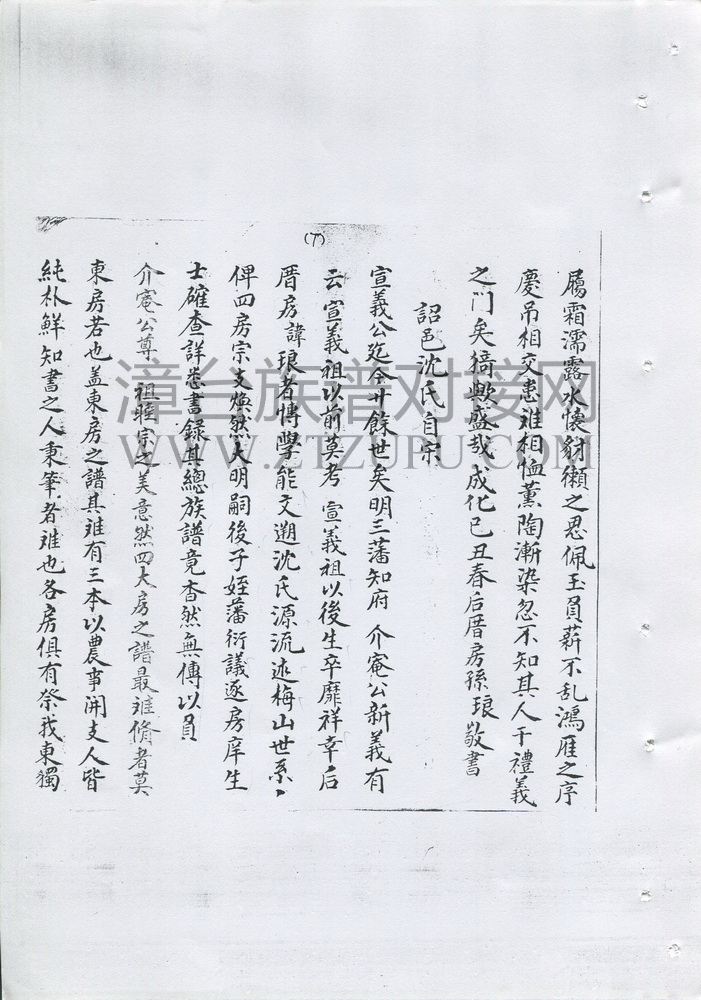 (T)
屩霜濡露水懷豺獺之思佩玉員薪不乱鴻雁之序
慶吊相交患难相恤薰陶漸染忽不知其人于禮義
之门矣猗歟盛哉成化己丑春后厝房孫琅敬書
詔邑沈氏自宗
宣義公迄今廿餘世矣明三藩知府 介菴公新義有
云宣義祖以前莫考 宣義祖以後生卒靡祥幸后
厝房諱琅者博學能文遡沈氏源流述梅山世系
俾四房宗支煥然大明嗣後子姪藩衍議逐房庠生
士確查詳悉書錄其總族譜竟杳然無傳以員
介菴公尊祖睦宗之美意然四大房之譜最难脩者莫
東房若也盖東房之譜其难有三本以農事開支人皆
純朴鮮知書之人秉筆者难也各房俱有祭我東獨
漳台族谱对接网
WWW.ZTZUPU.COM